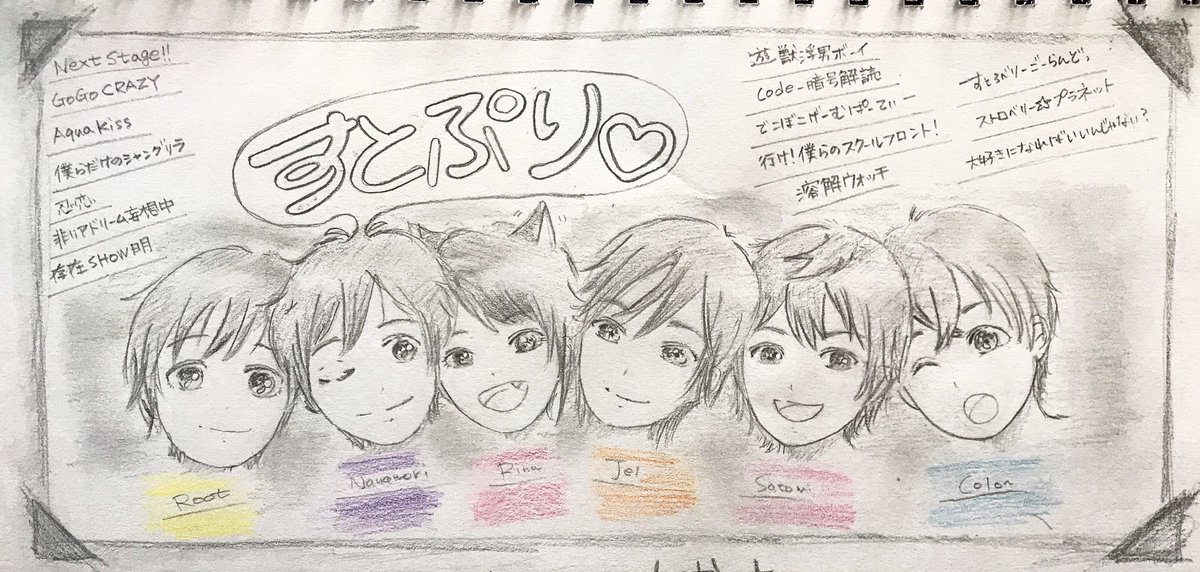 Next Stage!!
GoGo CRAZY
Aqua Kiss
僕らだけのシャングリラ
忍恋
非リアドリーム妄想中
存在SHOW明
すとぷり♡
遊獣浮男ボーイ
Code-暗号解読
でこぼこげーむぱーてぃー
行け!僕らのスクールフロント!
溶解ウォッチ
すとろべりーごーらんど
ストロベリー☆プラネット
大好きになればいいんじゃない?
Root
Nanamori
Rinu
Jel
Satomi
Colon